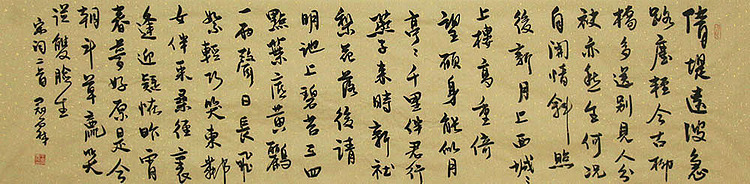 隋堤遠波急
路塵輕今古柳
橋多送別見人分
袂亦愁生何況
自關情斜照
後新月上西城〻
上樓高重倚
望願身能似月
亭〻千里伴君行
燕子來時新社
梨花落後清
明池上碧苔三四
點葉底黃鸝
一兩聲日長飛
絮輕巧笑東鄰
女伴采桑徑裏
逢迎疑怪昨宵
春夢好原是今
朝鬥草贏笑
從雙臉生
宋詞二首